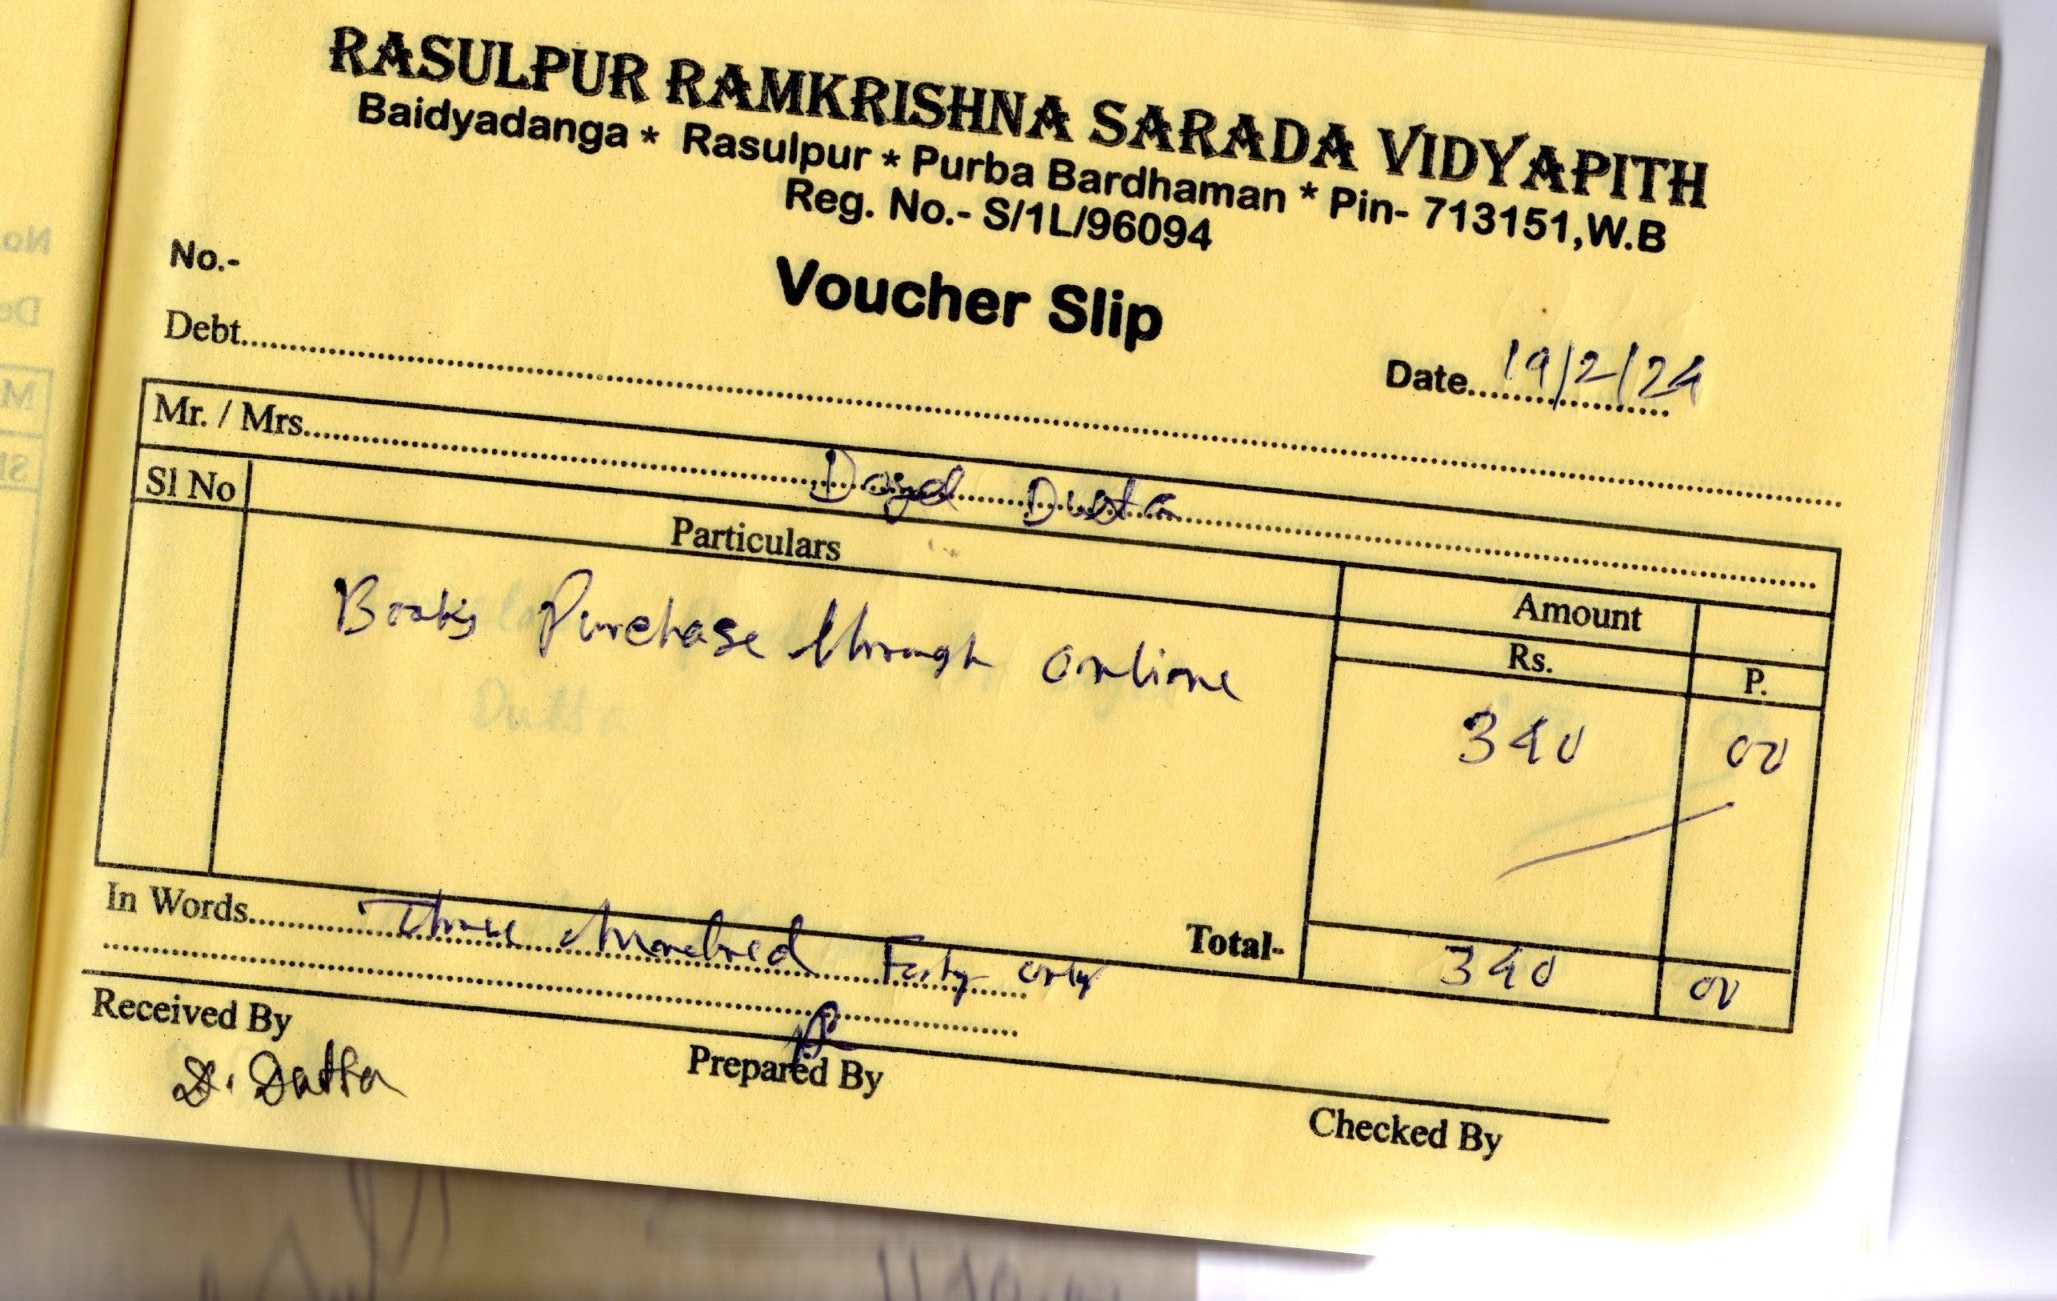 RASULPUR RAMKRISHNA SARADA VIDYAPITH
Baidyadanga * Rasulpur * Purba Bardhaman * Pin- 713151,W.B
Reg. No.- S/1L/96094
No.-
Voucher Slip
Debt
Date 19/2/24
Mr. / Mrs. Dutta
Sl No Particulars Amount
Rs. P.
Books Purchase through online 340 00
In Words Three hundred Forty only
Total- 340 00
Received By Prepared By Checked By
D. Dutta